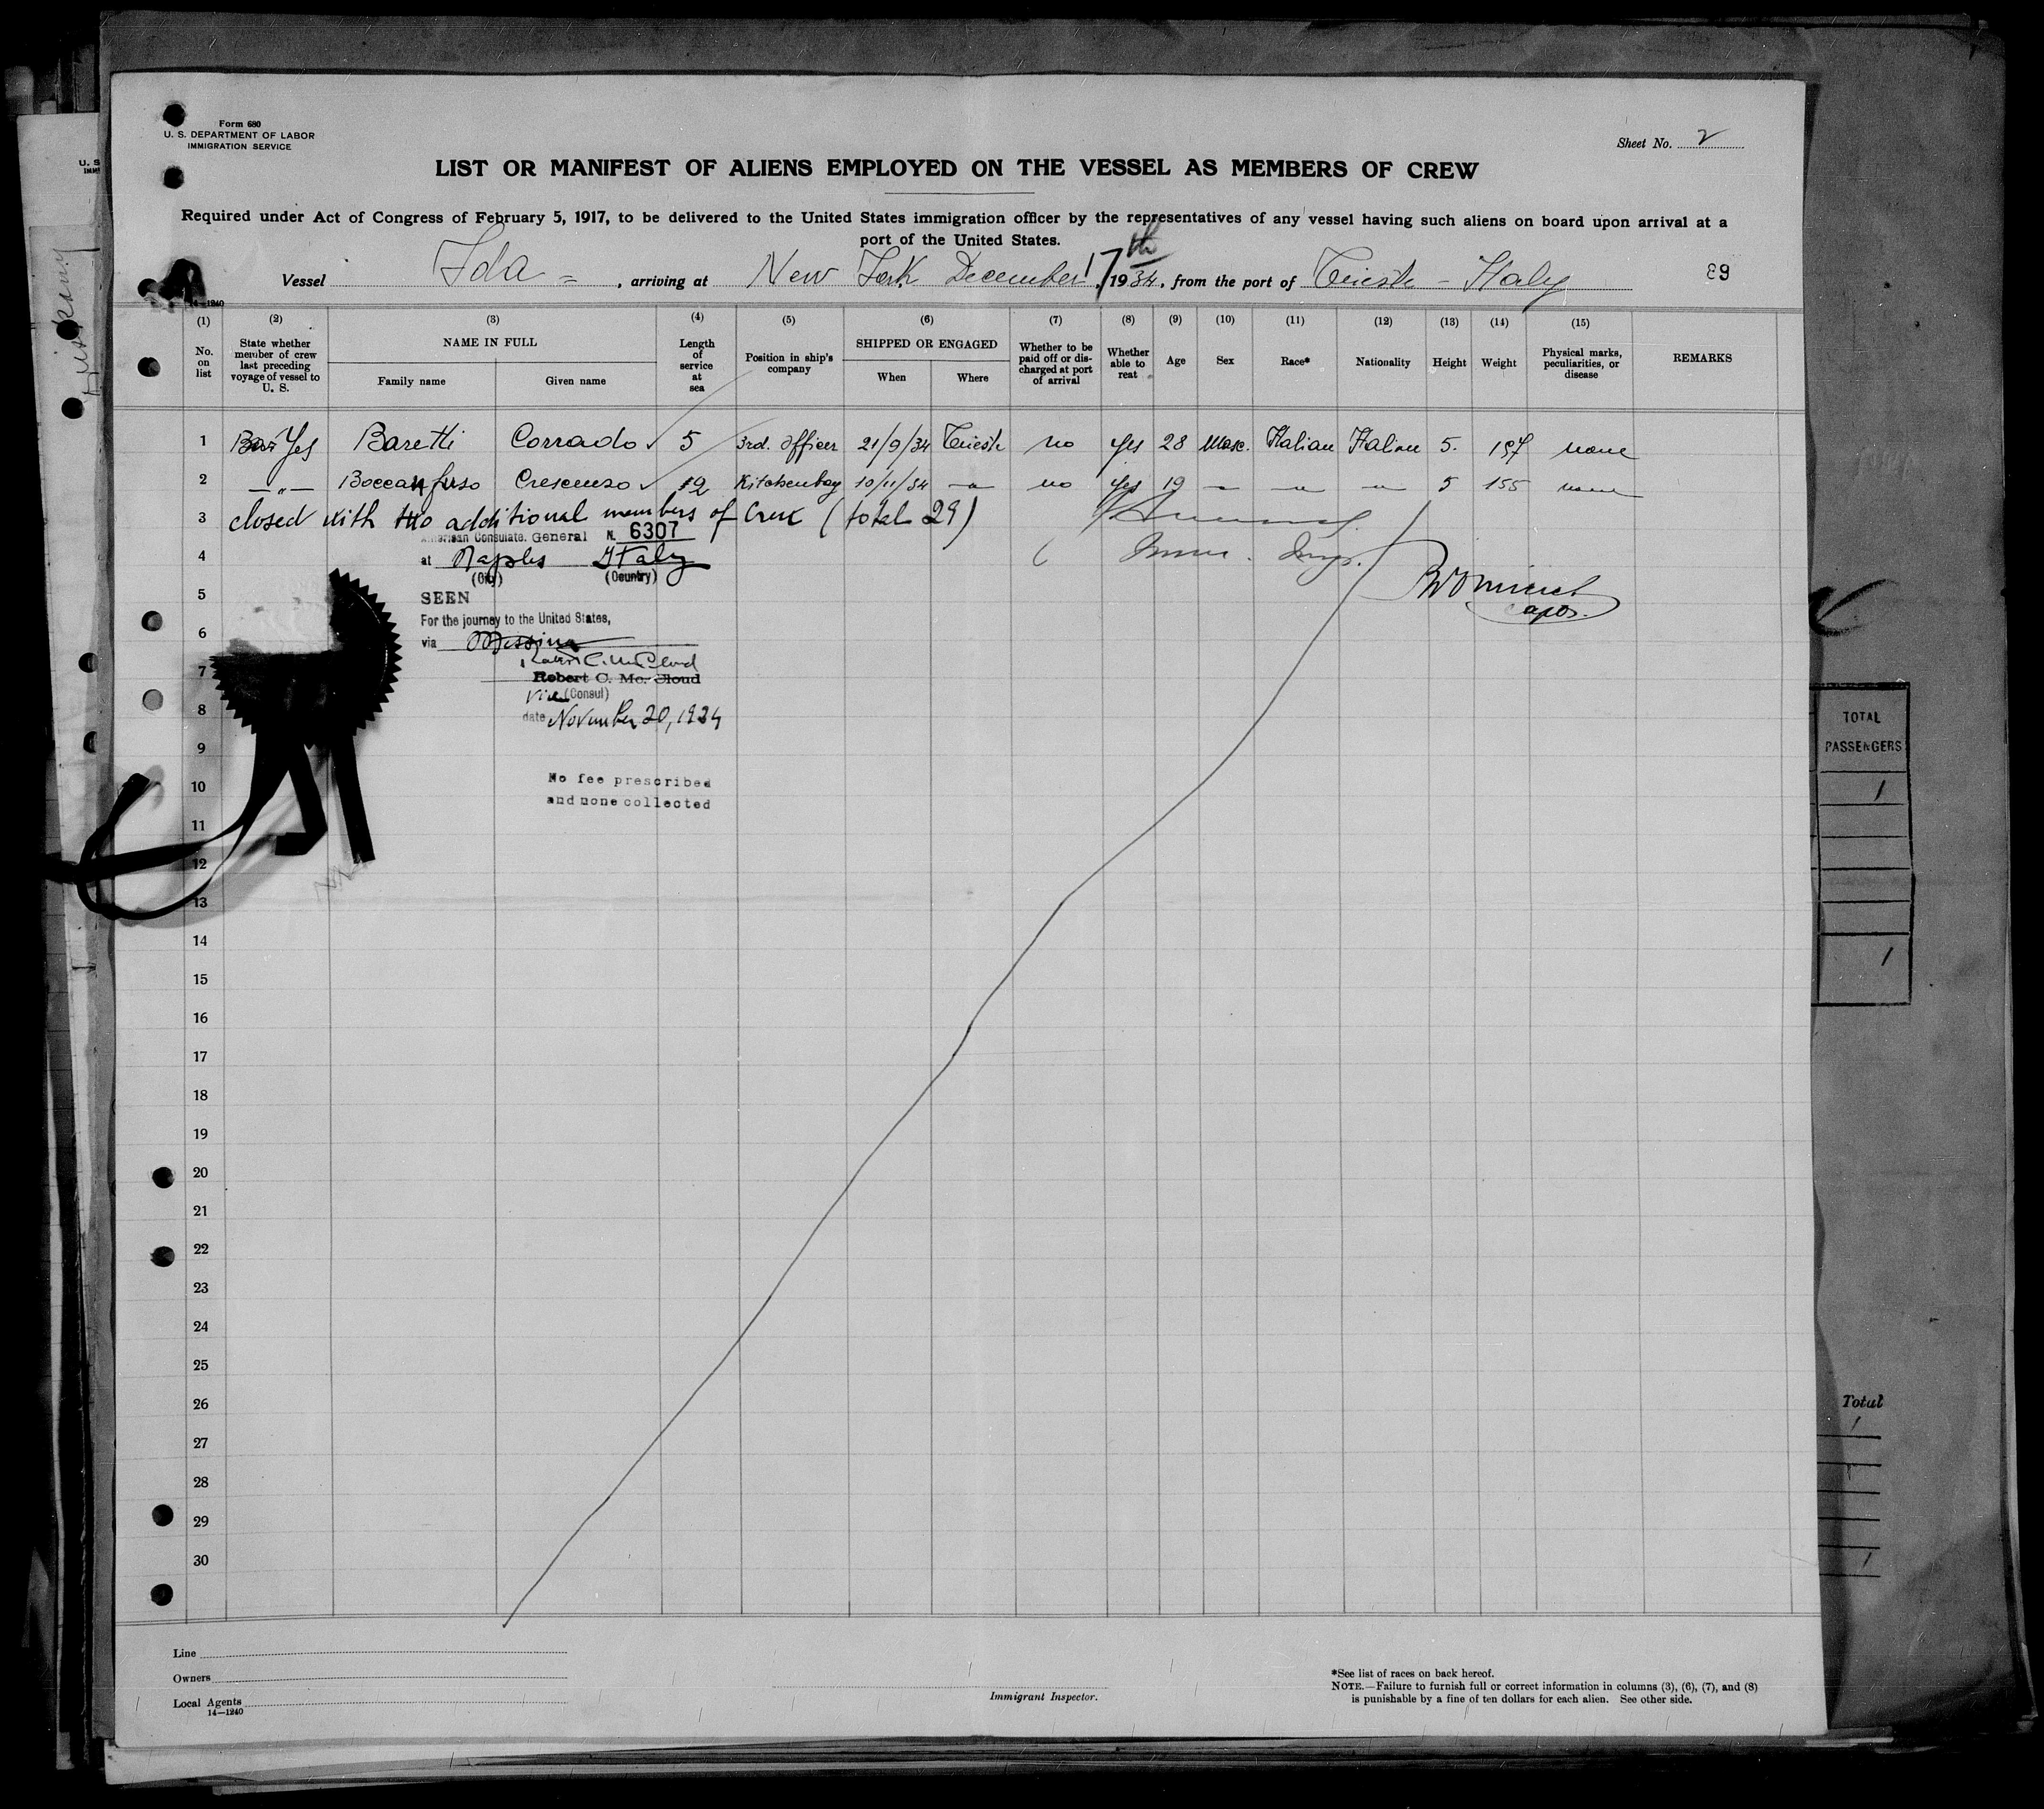 Form 680
U. S. DEPARTMENT OF LABOR
IMMIGRATION SERVICE
Sheet No. 2
LIST OR MANIFEST OF ALIENS EMPLOYED ON THE VESSEL AS MEMBERS OF CREW
Required under Act of Congress of February 5, 1917, to be delivered to the United States immigration officer by the representatives of any vessel having such aliens on board upon arrival at a
port of the United States.
Vessel Ida = , arriving at New York December 17th, 1934, from the port of Trieste - Italy 89
14-1240
(1) (2) (3) (4) (5) (6) (7) (8) (9) (10) (11) (12) (13) (14) (15)
No. on list
State whether member of crew last preceding voyage of vessel to U. S.
NAME IN FULL
Family name Given name
Length of service at sea
Position in ship's company
SHIPPED OR ENGAGED
When Where
Whether to be paid off or discharged at port of arrival
Whether able to read
Age Sex Race* Nationality Height Weight
Physical marks, peculiarities, or disease
REMARKS
1 Yes Baretti Corrado 5 3rd. officer 21/9/34 Trieste no yes 28 Masc. Italian Italian 5. 157 none
2 -"- Boccanfuso Crescenzo 12 Kitchenboy 10/11/34 -"- no yes 19 -"- -"- -"- 5 155 none
3 closed with two additional members of Crew (total 29)
American Consulate General N. 6307
4 at Naples Italy
(City) (Country)
5 SEEN
For the journey to the United States,
6 via Messina
7 Robert C. McCloud
Robert C. Mc. Cloud
Vice (Consul)
8 date November 20, 1934
9
10 No fee prescribed
and none collected
11
12
13
14
15
16
17
18
19
20
21
22
23
24
25
26
27
28
29
30
Line
Owners
Local Agents
14—1240
Immigrant Inspector.
*See list of races on back hereof.
NOTE.—Failure to furnish full or correct information in columns (3), (6), (7), and (8)
is punishable by a fine of ten dollars for each alien. See other side.
TOTAL
PASSENGERS
1
1
Total
1
1